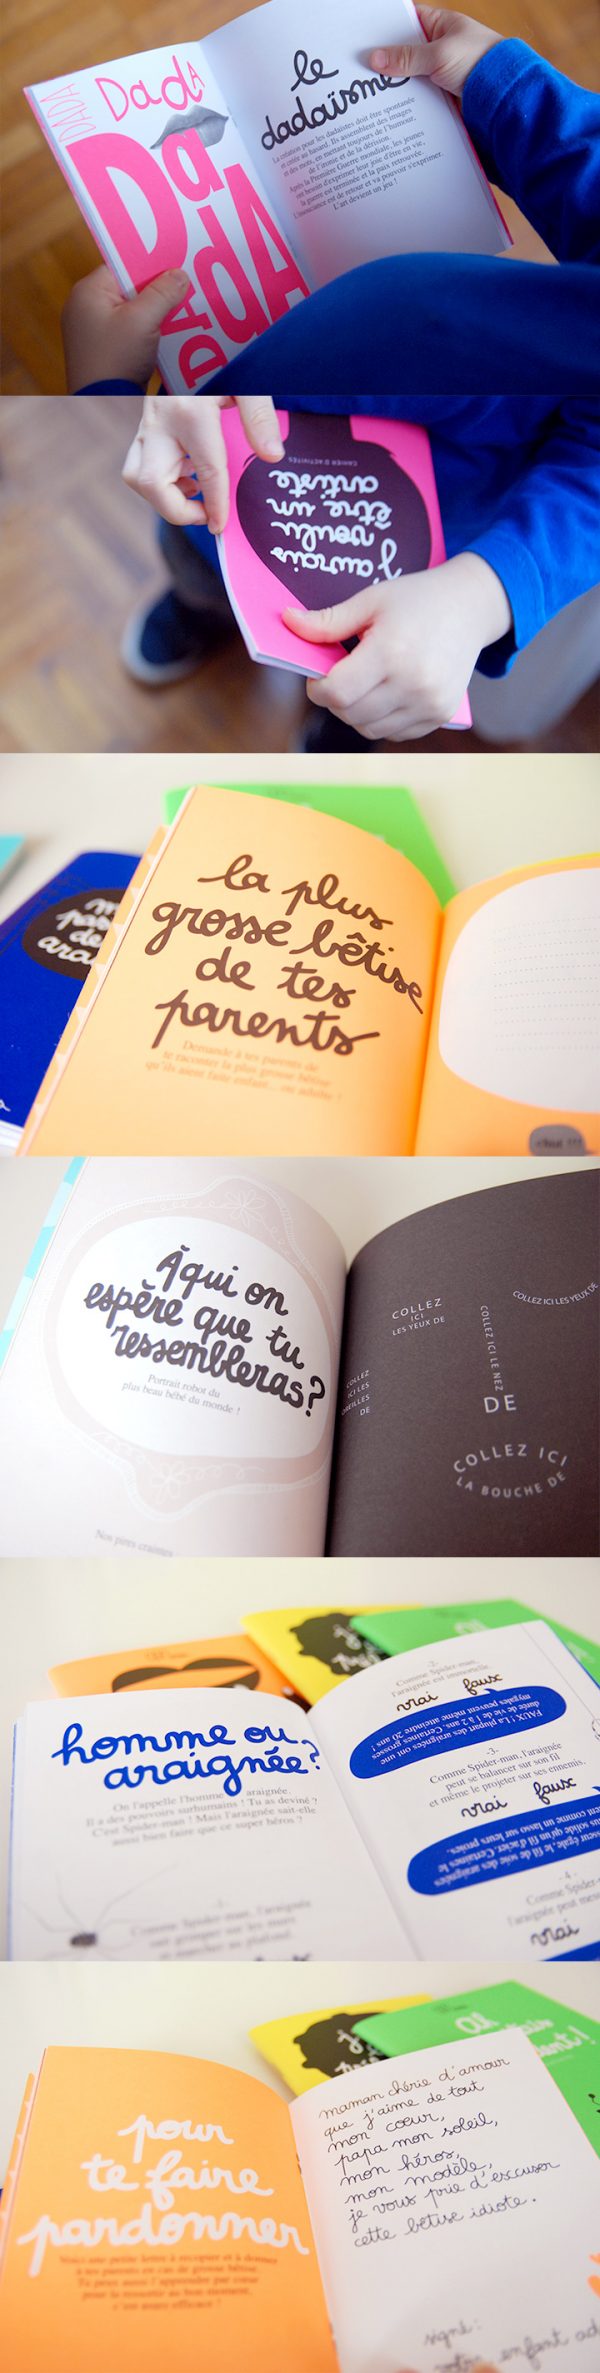 DADA
DadA
DadA
DADA
le
dadaïsme
La création pour les dadaïstes doit être spontanée
et créée au hasard. Ils assemblent des images
et des mots, en mettant toujours de l'humour,
de l'ironie et de la dérision.
Après la Première Guerre mondiale, les jeunes
ont besoin d'exprimer leur joie d'être en vie,
la guerre est terminée et la paix retrouvée.
L'insouciance est de retour et va pouvoir s'exprimer.
L'art devient un jeu !
CAHIER D'ACTIVITÉS
j'aurais
voulu
être un
artiste
la plus
grosse bêtise
de tes
parents
Demande à tes parents de
te raconter la plus grosse bêtise
qu'ils aient faite enfant... ou adulte !
chut !!!
À qui on
espère que tu
ressembleras?
Portrait robot du
plus beau bébé du monde !
Nos pires craintes
COLLEZ
ICI
LES YEUX DE
COLLEZ ICI LES YEUX DE
COLLEZ
ICI LES
OREILLES
DE
COLLEZ ICI LE NEZ
DE
COLLEZ ICI
LA BOUCHE DE
homme ou
araignée?
On l'appelle l'homme araignée.
Il a des pouvoirs surhumains ! Tu as deviné ?
C'est Spider-man ! Mais l'araignée sait-elle
aussi bien faire que ce super héros ?
-1-
Comme Spider-man, l'araignée
peut grimper sur les murs
et marcher au plafond.
-2-
Comme Spider-man,
l'araignée est immortelle.
vrai faux
FAUX ! La plupart des araignées ont une
durée de vie de 1 à 2 ans. Certaines grosses
mygales peuvent même atteindre 20 ans !
-3-
Comme Spider-man, l'araignée
peut se balancer sur son fil
et même le projeter sur ses ennemis.
vrai faux
-4-
Comme Spider-
l'araignée peut
vrai
pour
te faire
pardonner
Voici une petite lettre à recopier et à donner
à tes parents en cas de grosse bêtise.
Tu peux aussi l'apprendre par cœur
pour la ressortir au bon moment,
c'est assez efficace !
maman chérie d'amour
que j'aime de tout
mon cœur,
papa mon soleil,
mon héros,
mon modèle,
je vous prie d'excuser
cette bêtise idiote.
signé :
votre enfant ad